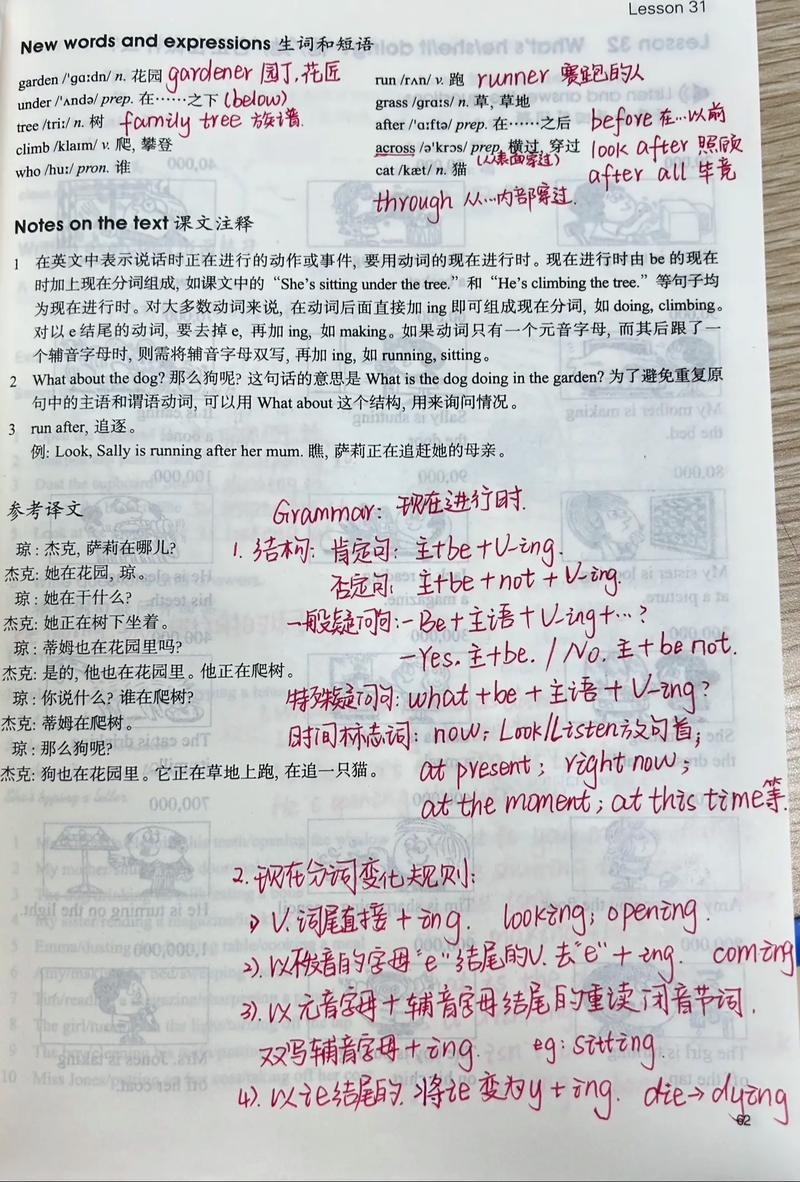 Lesson 31
New words and expressions 生词和短语
garden /'gɑ:dn/ n. 花园 gardener 园丁,花匠
under /'ʌndə/ prep. 在……之下 (below)
tree /tri:/ n. 树 family tree 族谱
climb /klaɪm/ v. 爬, 攀登
who /hu:/ pron. 谁
run /rʌn/ v. 跑 runner 赛跑的人
grass /grɑ:s/ n. 草, 草地
after /'ɑ:ftə/ prep. 在……之后 before 在…以前
across /ə'krɒs/ prep. 横过, 穿过 (从表面穿过) look after 照顾
cat /kæt/ n. 猫 after all 毕竟
through 从…内部穿过.
Notes on the text 课文注释
1 在英文中表示说话时正在进行的动作或事件, 要用动词的现在进行时。现在进行时由 be 的现在
时加上现在分词组成, 如课文中的 “She’s sitting under the tree.” 和 “He’s climbing the tree.” 等句子均
为现在进行时。对大多数动词来说, 在动词后面直接加 ing 即可组成现在分词, 如 doing, climbing。
对以 e 结尾的动词, 要去掉 e, 再加 ing, 如 making。如果动词只有一个元音字母, 而其后跟了一
个辅音字母时, 则需将辅音字母双写, 再加 ing, 如 running, sitting。
2 What about the dog? 那么狗呢? 这句话的意思是 What is the dog doing in the garden? 为了避免重复原
句中的主语和谓语动词, 可以用 What about 这个结构, 用来询问情况。
3 run after, 追逐。
例: Look, Sally is running after her mum. 瞧, 萨莉正在追赶她的母亲。
参考译文
琼: 杰克, 萨莉在哪儿?
杰克: 她在花园, 琼。
琼: 她在干什么?
杰克: 她正在树下坐着。
琼: 蒂姆也在花园里吗?
杰克: 是的, 他也在花园里。他正在爬树。
琼: 你说什么? 谁在爬树?
杰克: 蒂姆在爬树。
琼: 那么狗呢?
杰克: 狗也在花园里。它正在草地上跑, 在追一只猫。
Grammar: 现在进行时.
1. 结构: 肯定句: 主+be+V-ing.
否定句: 主+be+not+V-ing.
一般疑问句: -Be+主语+V-ing+…?
-Yes. 主+be. / No. 主+be not.
特殊疑问句: what+be+主语+V-ing?
时间标志词: now; Look/Listen放句首;
at present; right now;
at the moment; at this time等.
2. 现在分词变化规则:
1) V. 词尾直接+ing. looking; opening.
2). 以不发音的字母“e”结尾的V. 去“e”+ing. coming
3). 以元音字母+辅音字母结尾的重读闭音节词,
双写辅音字母+ing. eg: sitting.
4). 以ie结尾的. 将ie变为y+ing. die→dying
62